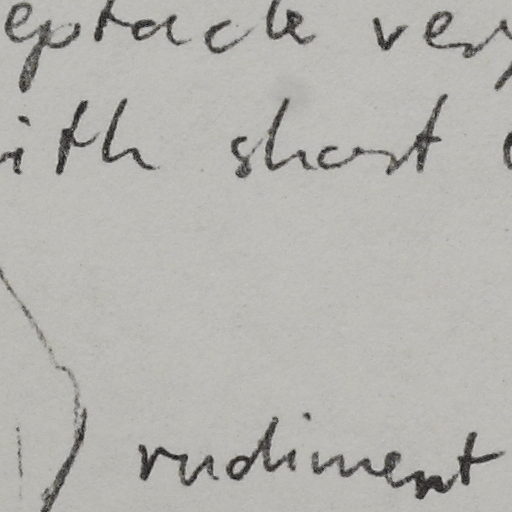 eptacle very
ith short
rudiment